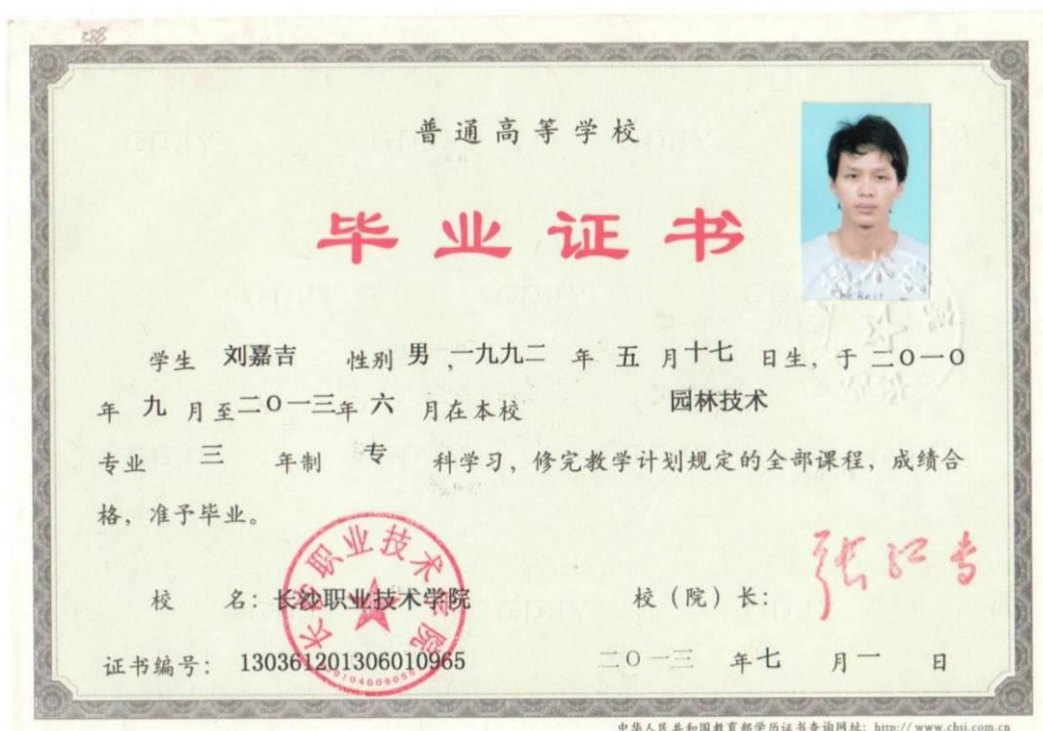 普通高等学校
毕业证书
学生 刘嘉吉 性别 男，一九九二 年 五 月十七 日生，于 二〇一〇
年 九 月至二〇一三年 六 月在本校 园林技术
专业 三 年制 专 科学习，修完教学计划规定的全部课程，成绩合
格，准予毕业。
校 名：长沙职业技术学院 校（院）长：
证书编号：130361201306010965 二〇一三 年七 月一 日
长沙职业技术学院
中华人民共和国教育部学历证书查询网址：http://www.chsi.com.cn